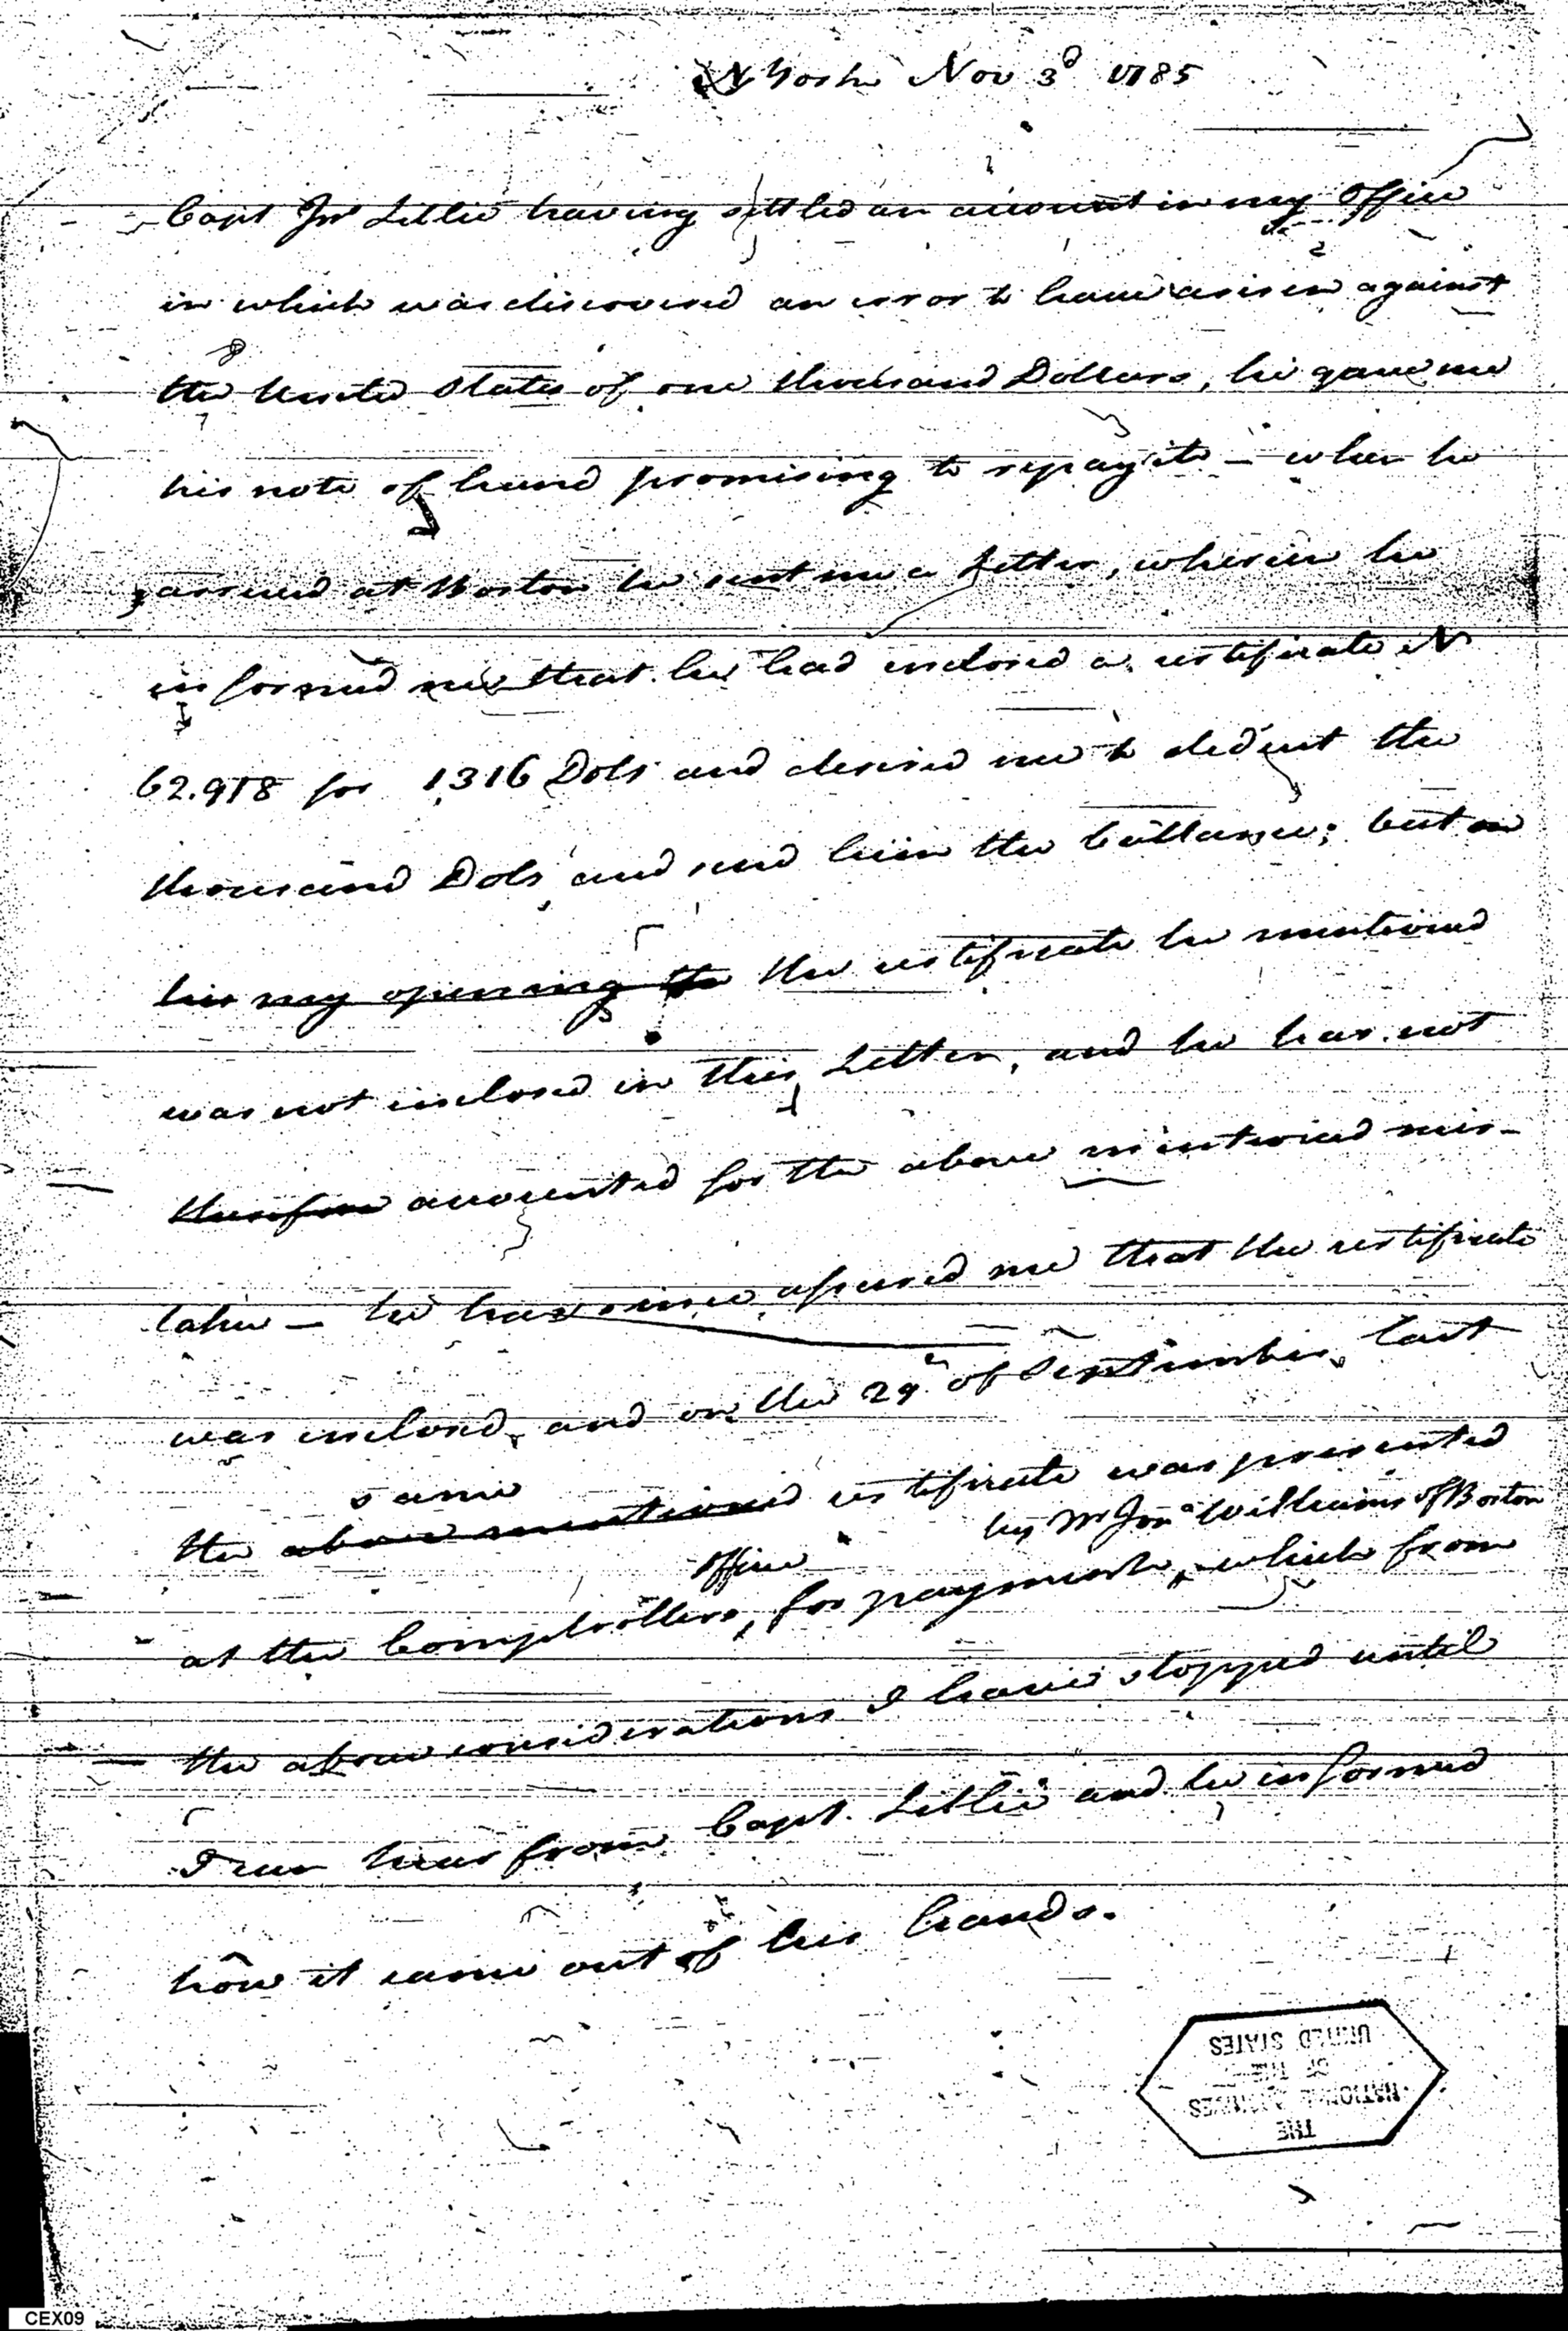 N York Nov 3d 1785
Capt Jno Lillie having settled an account in my Office
in which was discovered an error to have arisen against
the United States of one thousand Dollars, he gave me
his note of hand promising to repay it — when he
arrived at Boston he sent me a Letter, wherein he
informed me that he had inclosed a certificate N
62.978 for 1316 Dols and desired me to deduct the
thousand Dols and send him the ballance; but on
his my opening the the certificate he mentioned
was not inclosed in this Letter, and he has not
therefore accounted for the above mentioned mis-
take — he has since assured me that the certificate
was inclosed, and on the 29th of September last
same
the above mentioned certificate was presented
by Mr Jona Williams of Boston
office
at the Comptrollers, for payment, which from
the above considerations I have stopped until
I can hear from Capt. Lillie and be informed
how it came out of his hands.
THE
NATIONAL ARCHIVES
OF THE
UNITED STATES
CEX09